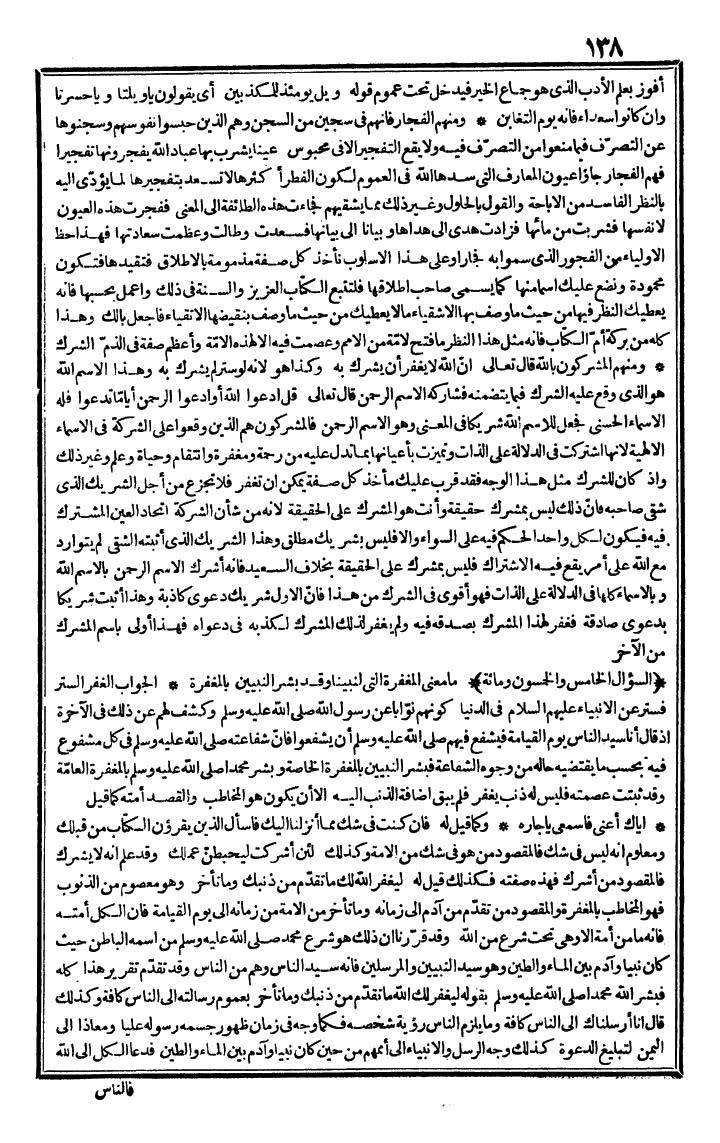 ١٣٨
أفوز بعلم الأدب الذى هو جماع الخير فيدخل تحت عموم قوله ويل يومئذ للمكذبين أى يقولون ياويلتا وياحسرتا
وان كانوا سعداء فانه يوم التغابن * ومنهم الفجار فانهم فى سجين من السجن وهم الذين حبسوا نفوسهم وسجنوها
عن التصرف فيما منعوا من التصرف فيه ولا يقع التفجير الا فى محبوس عينا يشرب بها عباد الله يفجرونها تفجيرا
فهم الفجار جاؤا عيون المعارف التى سدها الله فى العموم لكون الفطر أكثرها لا تسعد بتفجيرها لما يؤدى اليه
بالنظر الفاسد من الاباحة والقول بالحلول وغير ذلك مما يشقيهم فجاءت هذه الطائفة الى المعنى ففجرت هذه العيون
لانفسها فشربت من مائها فزادت هدى الى هداها وبيانا الى بيانها فسعدت وطالت وعظمت سعادتها فهذا حظ
الاولياء من الفجور الذى سموا به فجارا وعلى هذا الاسلوب تأخذ كل صفة مذمومة بالاطلاق فتقيدها فتكون
محمودة وتضع عليك اسما منها كما يسمى صاحب اطلاقها فلتتبع الكتاب العزيز والسنة فى ذلك واعمل بحسبها فانه
يعطيك النظر فيها من حيث ما وصف بها الاشقياء ما لا يعطيك من حيث ما وصف بنقيضها الاتقياء فاجعل بالك وهذا
كله من بركة أم الكتاب فانه مثل هذا النظر ما فتح لامة من الامم وعصمت فيه الا لهذه الامة وأعظم صفة فى الذم الشرك
* ومنهم المشركون بالله قال تعالى ان الله لا يغفر أن يشرك به وكذا هو لانه لو ستر لم يشرك به وهذا الاسم الله
هو الذى وقع عليه الشرك فيما يتضمنه فشاركه الاسم الرحمن قال تعالى قل ادعوا الله أو ادعوا الرحمن أياما تدعوا فله
الاسماء الحسنى فجعل للاسم الله شريكا فى المعنى وهو الاسم الرحمن فالمشركون هم الذين وقعوا على الشركة فى الاسماء
الالهية لانها اشتركت فى الدلالة على الذات وتميزت بأعيانها بما تدل عليه من رحمة ومغفرة وانتقام وحياة وعلم وغير ذلك
واذ كان للشرك مثل هذا الوجه فقد قرب عليك مأخذ كل صفة يمكن ان تغفر فلا تجزع من أجل الشريك الذى
شقى صاحبه فان ذلك ليس بمشرك حقيقة وأنت هو المشرك على الحقيقة لانه من شأن الشركة اتحاد العين المشترك
فيه فيكون لكل واحد الحكم فيه على السواء والا فليس بشريك مطلق وهذا الشريك الذى أثبته الشقى لم يتوارد
مع الله على أمر يقع فيه الاشتراك فليس بمشرك على الحقيقة بخلاف السعيد فانه أشرك الاسم الرحمن بالاسم الله
و بالاسماء كلها فى الدلالة على الذات فهو أقوى فى الشرك من هذا فان الاول شريك دعوى كاذبة وهذا أثبت شريكا
بدعوى صادقة فغفر لهذا المشرك بصدقه فيه ولم يغفر لذلك المشرك لكذبه فى دعواه فهذا أولى باسم المشرك
من الآخر
﴿السؤال الخامس والخمسون ومائة﴾ ما معنى المغفرة التى لنبينا وقد بشر النبيين بالمغفرة * الجواب الغفر الستر
فستر عن الانبياء عليهم السلام فى الدنيا كونهم نوّابا عن رسول الله صلى الله عليه وسلم وكشف لهم عن ذلك فى الآخرة
اذ قال أنا سيد الناس يوم القيامة فيشفع فيهم صلى الله عليه وسلم أن يشفعوا فان شفاعته صلى الله عليه وسلم فى كل مشفوع
فيه بحسب ما يقتضيه حاله من وجوه الشفاعة فبشر النبيين بالمغفرة الخاصة وبشر محمدا صلى الله عليه وسلم بالمغفرة العامة
وقد ثبتت عصمته فليس له ذنب يغفر فلم يبق اضافة الذنب اليه الا أن يكون هو المخاطب والقصد أمته كما قيل
* اياك أعنى فاسمعى ياجاره * وكما قيل له فان كنت فى شك مما أنزلنا اليك فاسأل الذين يقرؤن الكتاب من قبلك
ومعلوم انه ليس فى شك فالمقصود من هو فى شك من الامة وكذلك لئن أشركت ليحبطن عملك وقد علم انه لا يشرك
فالمقصود من أشرك فهذه صفته فكذلك قيل له ليغفر الله لك ما تقدم من ذنبك وما تأخر وهو معصوم من الذنوب
فهو المخاطب بالمغفرة والمقصود من تقدم من آدم الى زمانه وما تأخر من الامة من زمانه الى يوم القيامة فان الكل أمته
فانه ما من أمة الا وهى تحت شرع من الله وقد قررنا ان ذلك هو شرع محمد صلى الله عليه وسلم من اسمه الباطن حيث
كان نبيا وآدم بين الماء والطين وهو سيد النبيين والمرسلين فانه سيد الناس وهم من الناس وقد تقدم تقرير هذا كله
فبشر الله محمدا صلى الله عليه وسلم بقوله ليغفر لك الله ما تقدم من ذنبك وما تأخر بعموم رسالته الى الناس كافة وكذلك
قال انا أرسلناك الى الناس كافة وما يلزم الناس رؤية شخصه فكما وجه فى زمان ظهور جسمه رسوله عليا ومعاذا الى
اليمن لتبليغ الدعوة كذلك وجه الرسل والانبياء الى أممهم من حين كان نبيا وآدم بين الماء والطين فدعا الكل الى الله
فالناس